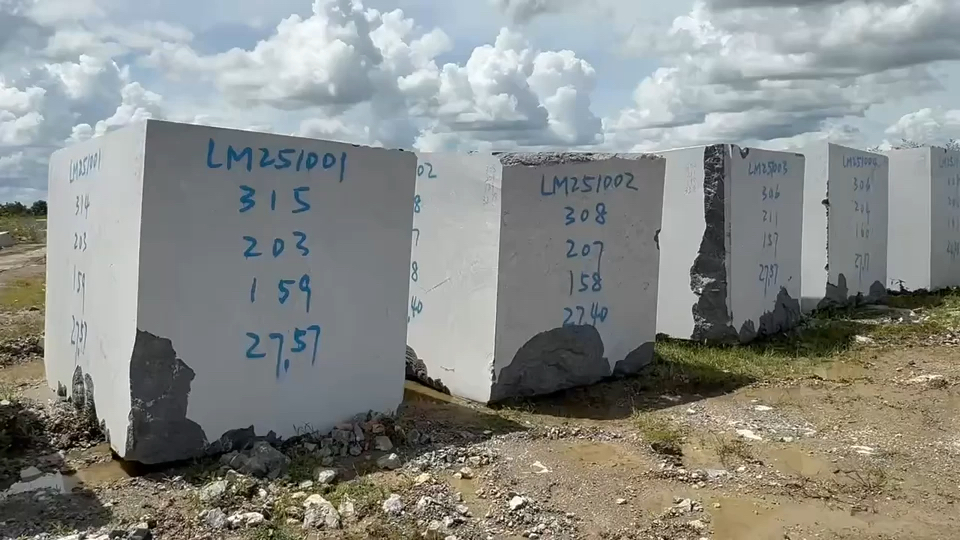 LM251001
314
203
159
27,57
LM251001
315
203
159
27,57
02
8
7
8
,40
LM251002
308
207
158
27,40
LM251003
306
211
157
27,57
LM251004
306
204
160
27,17